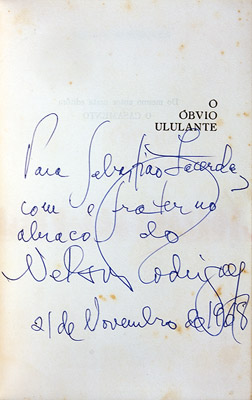 O
ÓBVIO
ULULANTE
Para Sebastião Lacerda,
com o fraterno
abraço do
Nelson Rodrigues
21 de Novembro de 1968